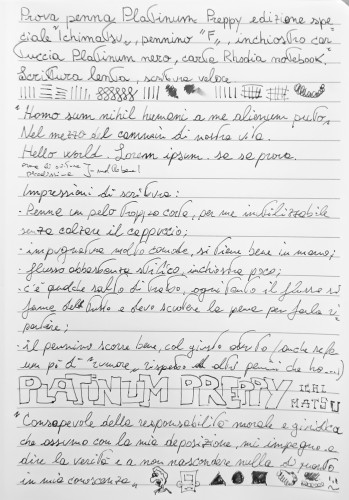 Prova penna Platinum Preppy edizione spe-
ciale "Ichimatsu", pennino "F", inchiostro car-
tuccia Platinum nero, carta Rhodia notebook.
Scrittura lenta, scrittura veloce
"Homo sum nihil humani a me alienum puto"
Nel mezzo del cammin di nostra vita.
Hello world. Lorem ipsum. sa sa prova.
Impressioni di scrittura:
- Penna un pelo troppo corta, per me inutilizzabile
senza calzare il cappuccio;
- impugnatura molto comoda, si tiene bene in mano;
- flusso abbastanza stitico, inchiostra poco;
- c'è qualche salto di tratto, ogni tanto il flusso si
ferma del tutto e devo scuotere la penna per farla ri-
partire;
- il pennino scorre bene, col giusto attrito (anche se fa
un po' di "rumore" rispetto ad altri pennini che ho...)
PLATINUM PREPPY ICHI
MATSU
"Consapevole della responsabilità morale e giuridica
che assumo con la mia deposizione, mi impegno a
dire la verità e a non nascondere nulla di quanto
in mia conoscenza"